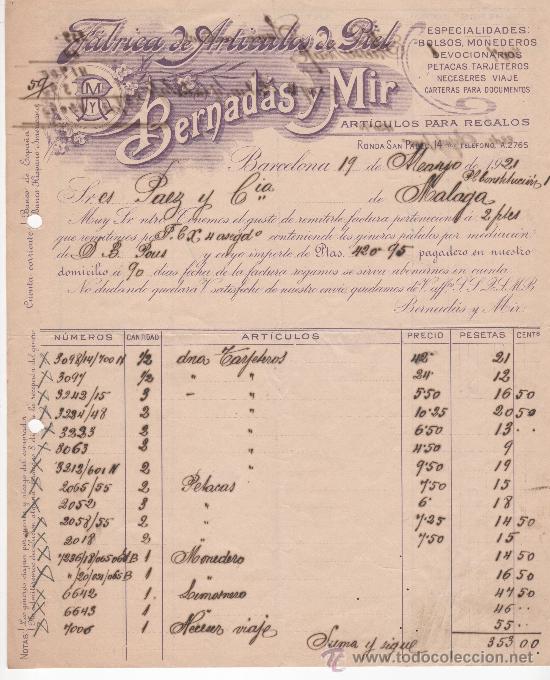 Fábrica de Artículos de Piel
Bernadas y Mir
ESPECIALIDADES:
BOLSOS, MONEDEROS
DEVOCIONARIOS
PETACAS TARJETEROS
NECESERES VIAJE
CARTERAS PARA DOCUMENTOS
ARTÍCULOS PARA REGALOS
RONDA SAN PABLO, 14 TELÉFONO, A. 2765
59
M Y B
Barcelona 19 de Marzo de 1921
Sres Paez y Cia de Malaga
Pl Constitución 1
Muy Sr. ntro: Tenemos el gusto de remitirle factura perteneciente á 2 ptes
que remitimos por F.C. x 4 asegdo conteniendo los géneros pedidos por mediación
de D. B. Pous y cuyo importe de Ptas. 420'95 pagadero en nuestro
domicilio á 90 dias fecha de la factura rogamos se sirva abonarnos en cuenta.
No dudando quedará V. satisfecho de nuestro envío, quedamos de V. affmos S. S. Q. E. S. M. B.
Bernadás y Mir.
Cuenta corriente Banco de España
Banco Hispano Americano
NOTAS:
NÚMEROS CANTIDAD ARTÍCULOS PRECIO PESETAS CENTS
3098/14/700 N 1/2 dna Tarjeteros 42 21
3097 1/2 " " 24 12
3242/15 3 - " 5'50 16 50
3234/48 2 " 10'25 20 50
3223 2 " 6'50 13
3063 2 " 4'50 9
3212/601 N 2 " 9'50 19
2065/55 2 Petacas 7'50 15
2052 3 " 6' 18
2058/55 2 " 7'25 14 50
2018 2 " 7'50 15
7236/18/065/066 B 1 Monedero 14 50
" /20/021/065 B 1 " 16 50
6642 1 Limosnero 47 50
6643 1 " 46
7006 1 Neceser viaje 55
Suma y sigue 353 00
todocoleccion
www.todocoleccion.net